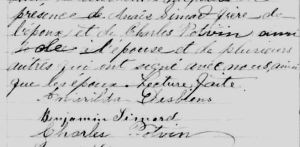 présence de Anaïs Simard frère de
l'époux et de Charles Potvin ami
de l'épouse et de plusieurs
autres qui ont signé avec nous ainsi
que les époux. Lecture faite.
Amarilda Desbiens
Benjamin Simard
Charles Potvin